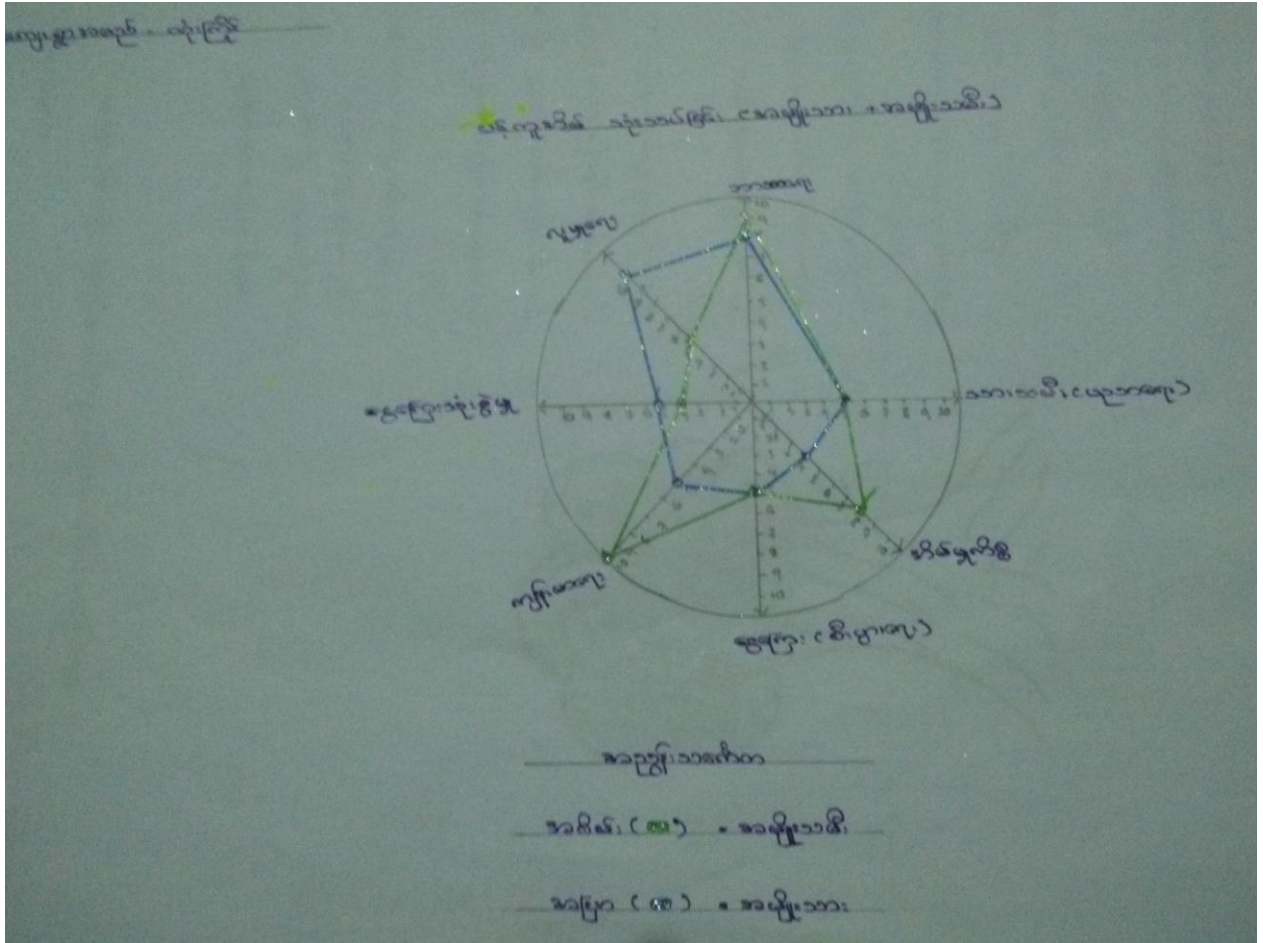 ကျေးရွာအမည် - ထုံးကြိုင်
ပင့်ကူအိမ် သုံးသပ်ခြင်း (အမျိုးသား + အမျိုးသမီး)
ဘာသာရေး
လူမှုရေး
သားသမီး (ပညာရေး)
ငွေကြေးသုံးစွဲမှု
အိမ်မှုကိစ္စ
ကျန်းမာရေး
ငွေကြေး (စီးပွားရေး)
အညွှန်းသင်္ကေတ
အစိမ်း ( ) = အမျိုးသမီး
အပြာ ( ) = အမျိုးသား